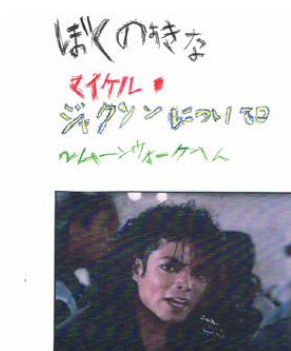 ぼくのすきな
マイケル・
ジャクソンについて
～ムーンウォークへん